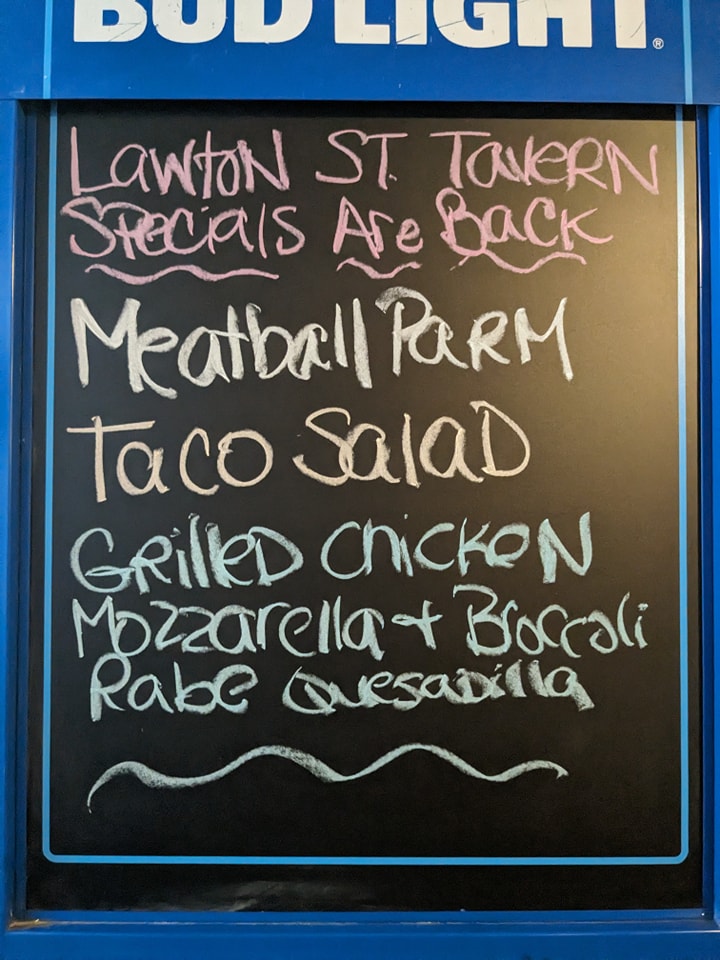 BUD LIGHT®
LAWTON ST. TAVERN
SPECIALS ARE BACK
Meatball PARM
Taco SALAD
GRILLED CHICKEN
Mozzarella + Broccoli
Rabe QUESADILLA